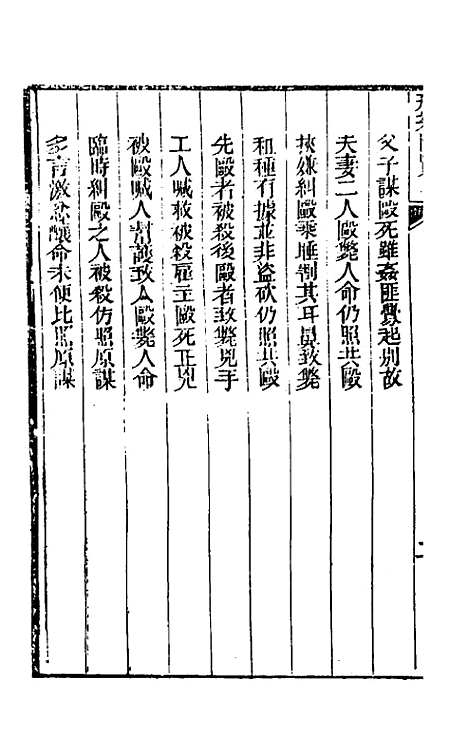 父子謀毆死雖姦匪釁起別故
夫妻二人毆斃人命仍照共毆
挾嫌糾毆乘睡割其耳鼻致斃
和種有據並非盜砍仍照共毆
先毆者被殺後毆者致斃兇手
工人喊救被殺雇主毆死正兇
被毆喊人幫護致人毆斃人命
臨時糾毆之人被殺仿照原謀
多言激忿釀命未便比照原謀